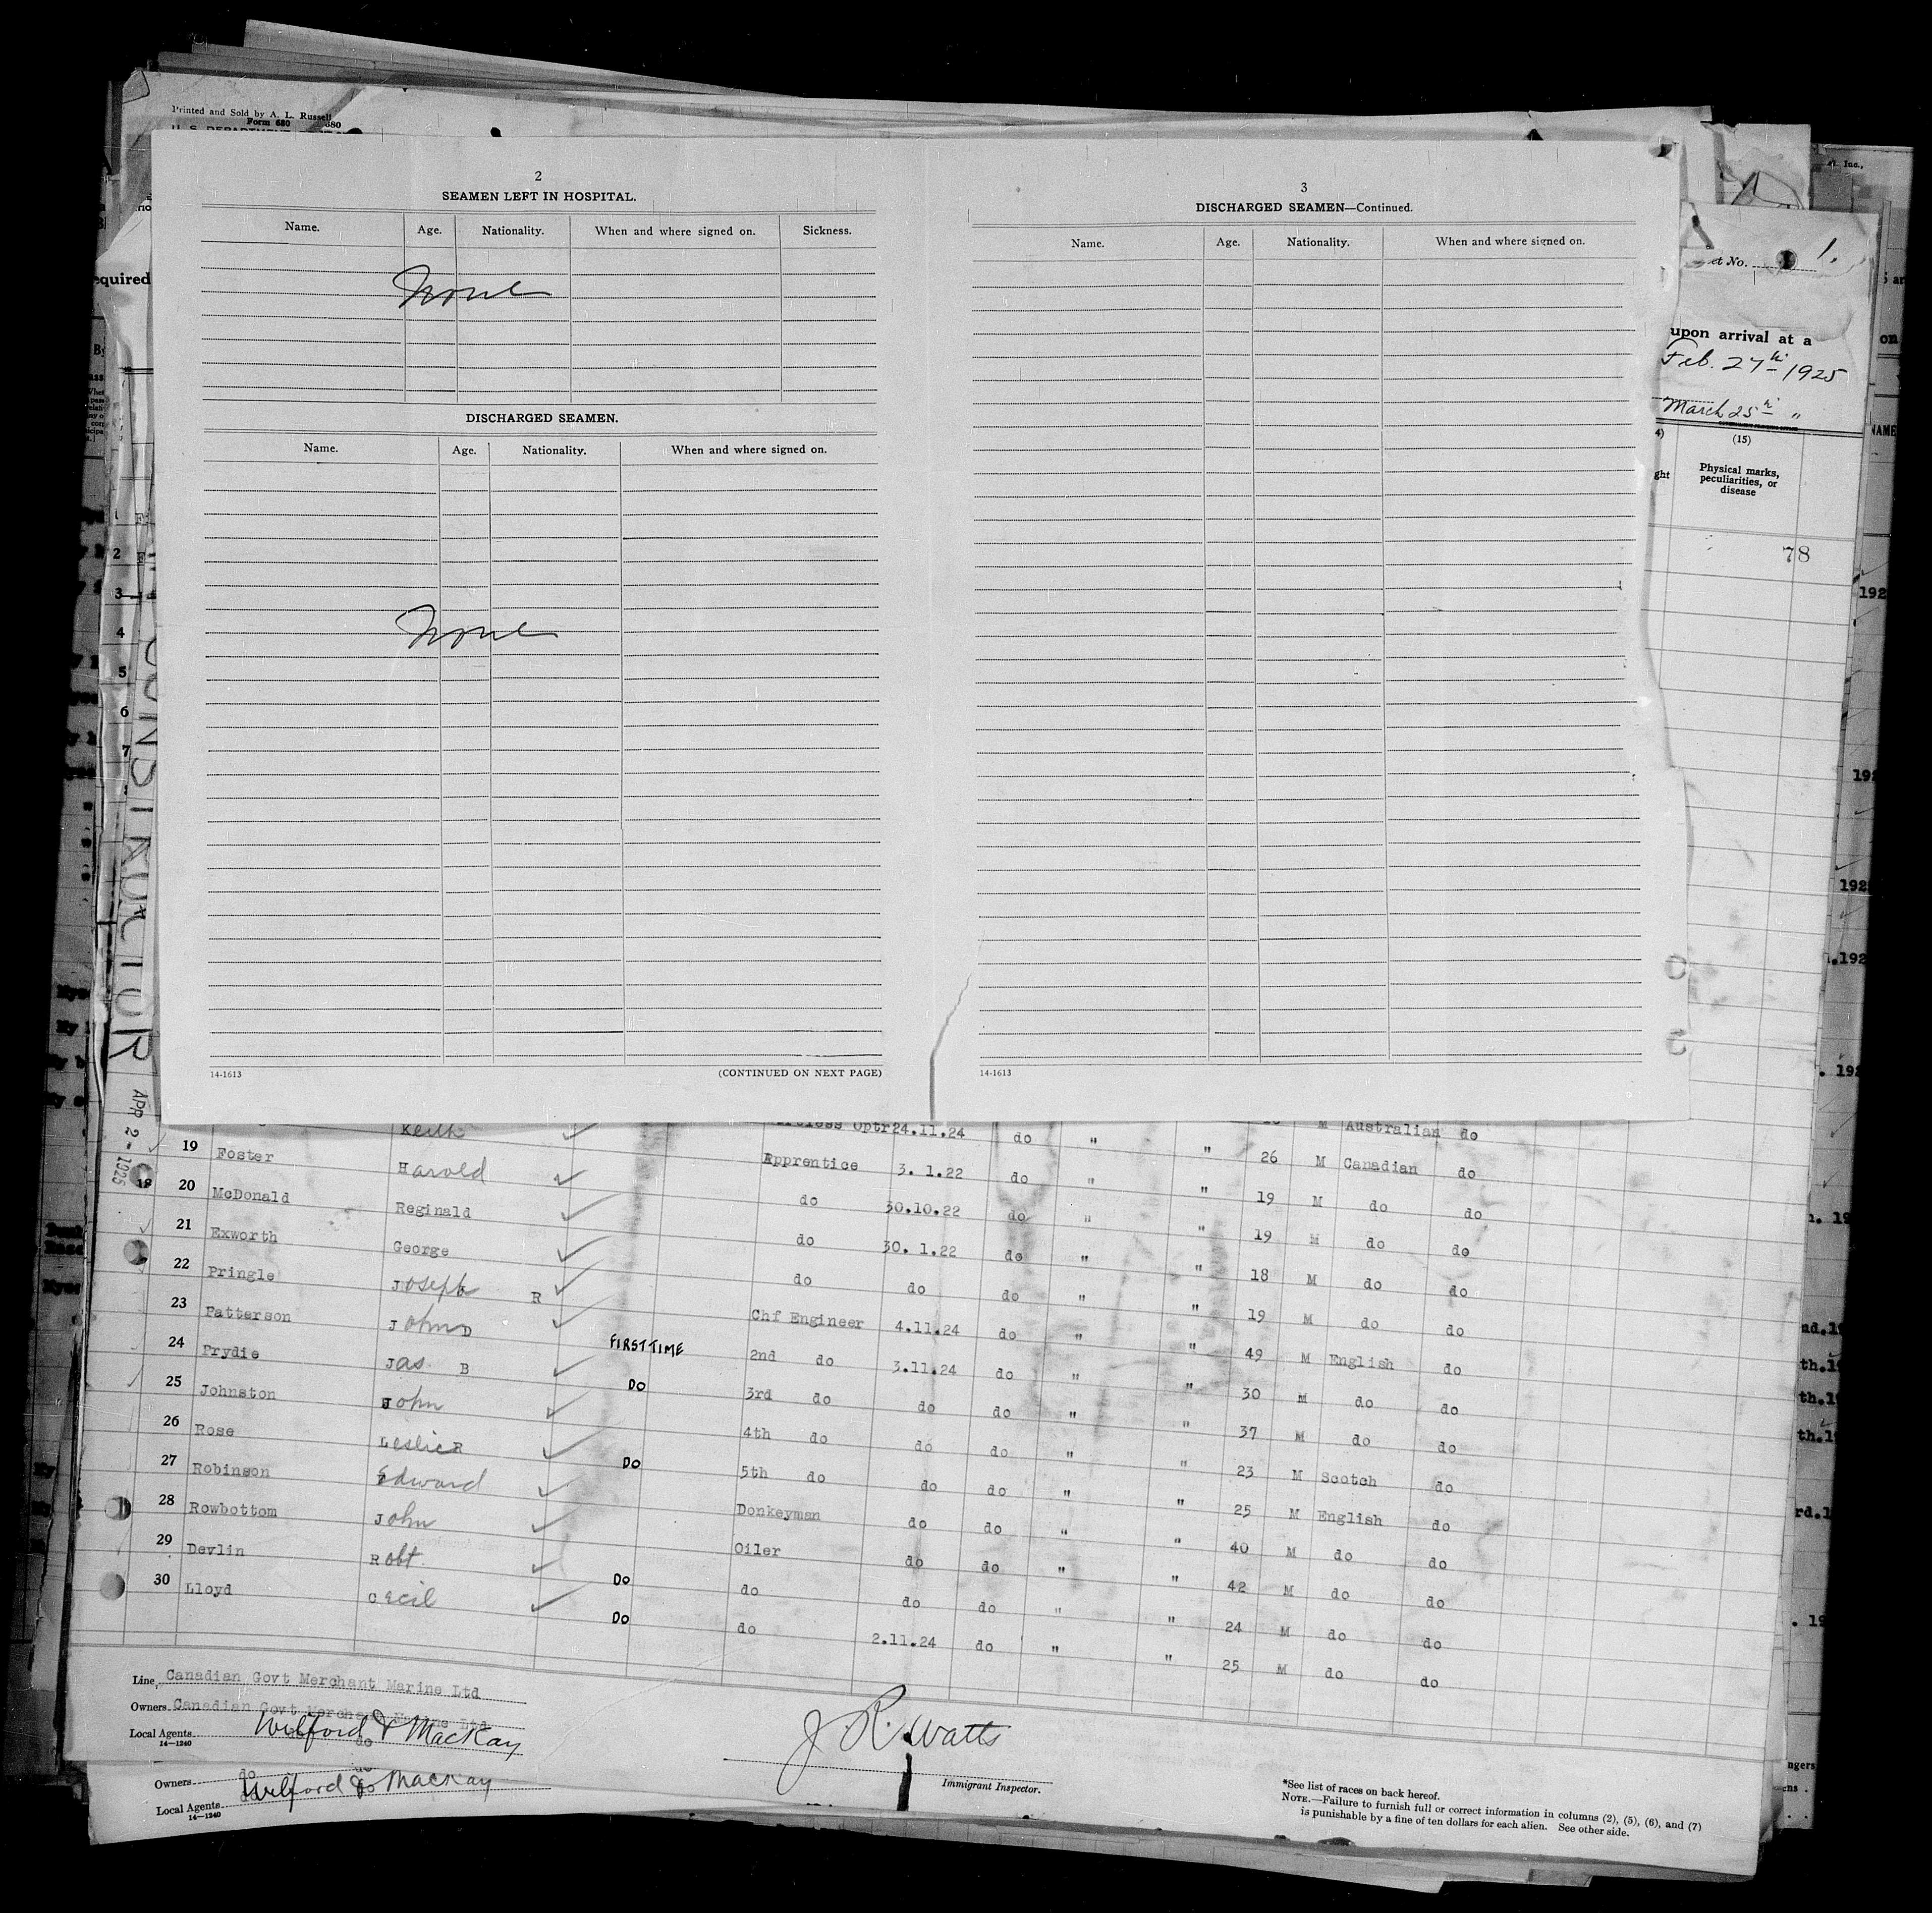 Printed and Sold by A. L. Russell
Form 680
680
2
SEAMEN LEFT IN HOSPITAL.
Name. Age. Nationality. When and where signed on. Sickness.
None
DISCHARGED SEAMEN.
Name. Age. Nationality. When and where signed on.
None
14-1613 (CONTINUED ON NEXT PAGE)
3
DISCHARGED SEAMEN—Continued.
Name. Age. Nationality. When and where signed on.
14-1613
1.
upon arrival at a
Feb. 27th 1925
March 25th "
(15)
Physical marks, peculiarities, or disease
78
1
2
3
4
5
6
7
APR 2-1925
Keith Optr 24.11.24 do " M Australian do
19 Foster Harold Apprentice 3. 1.22 do " " 26 M Canadian do
20 McDonald Reginald do 30.10.22 do " " 19 M do do
21 Exworth George do 30. 1.22 do " " 19 M do do
22 Pringle Joseph R do do do " " 18 M do do
23 Patterson John D Chf Engineer 4.11.24 do " " 19 M do do
24 Prydie Jas B FIRST TIME 2nd do 3.11.24 do " " 49 M English do
25 Johnston John Do 3rd do do do " " 30 M do do
26 Rose Leslie R 4th do do do " " 37 M do do
27 Robinson Edward Do 5th do do do " " 23 M Scotch do
28 Rowbottom John Donkeyman do do " " 25 M English do
29 Devlin Robt Oiler do do " " 40 M do do
30 Lloyd Cecil Do do do do " " 42 M do do
Do do 2.11.24 do " " 24 M do do
25 M do do
Line, Canadian Govt Merchant Marine Ltd
Owners Canadian Govt Merchant Marine Ltd
Local Agents Wilford & MacKay
14—1240
J R. Watts
Immigrant Inspector.
Owners do
Local Agents Wilford & MacKay
14—1240
*See list of races on back hereof.
NOTE.—Failure to furnish full or correct information in columns (2), (5), (6), and (7)
is punishable by a fine of ten dollars for each alien. See other side.